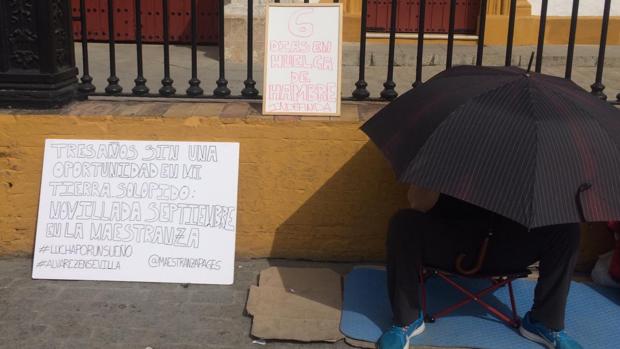 6
DIAS EN
HUELGA
DE
HAMBRE
INDEFINIDA
TRES AÑOS SIN UNA
OPORTUNIDAD EN MI
TIERRA SOLO PIDO:
NOVILLADA SEPTIEMBRE
EN LA MAESTRANZA
#LUCHAPORUNSUEÑO
#ALVAREZENSEVILLA @MAESTRANZAPAGES